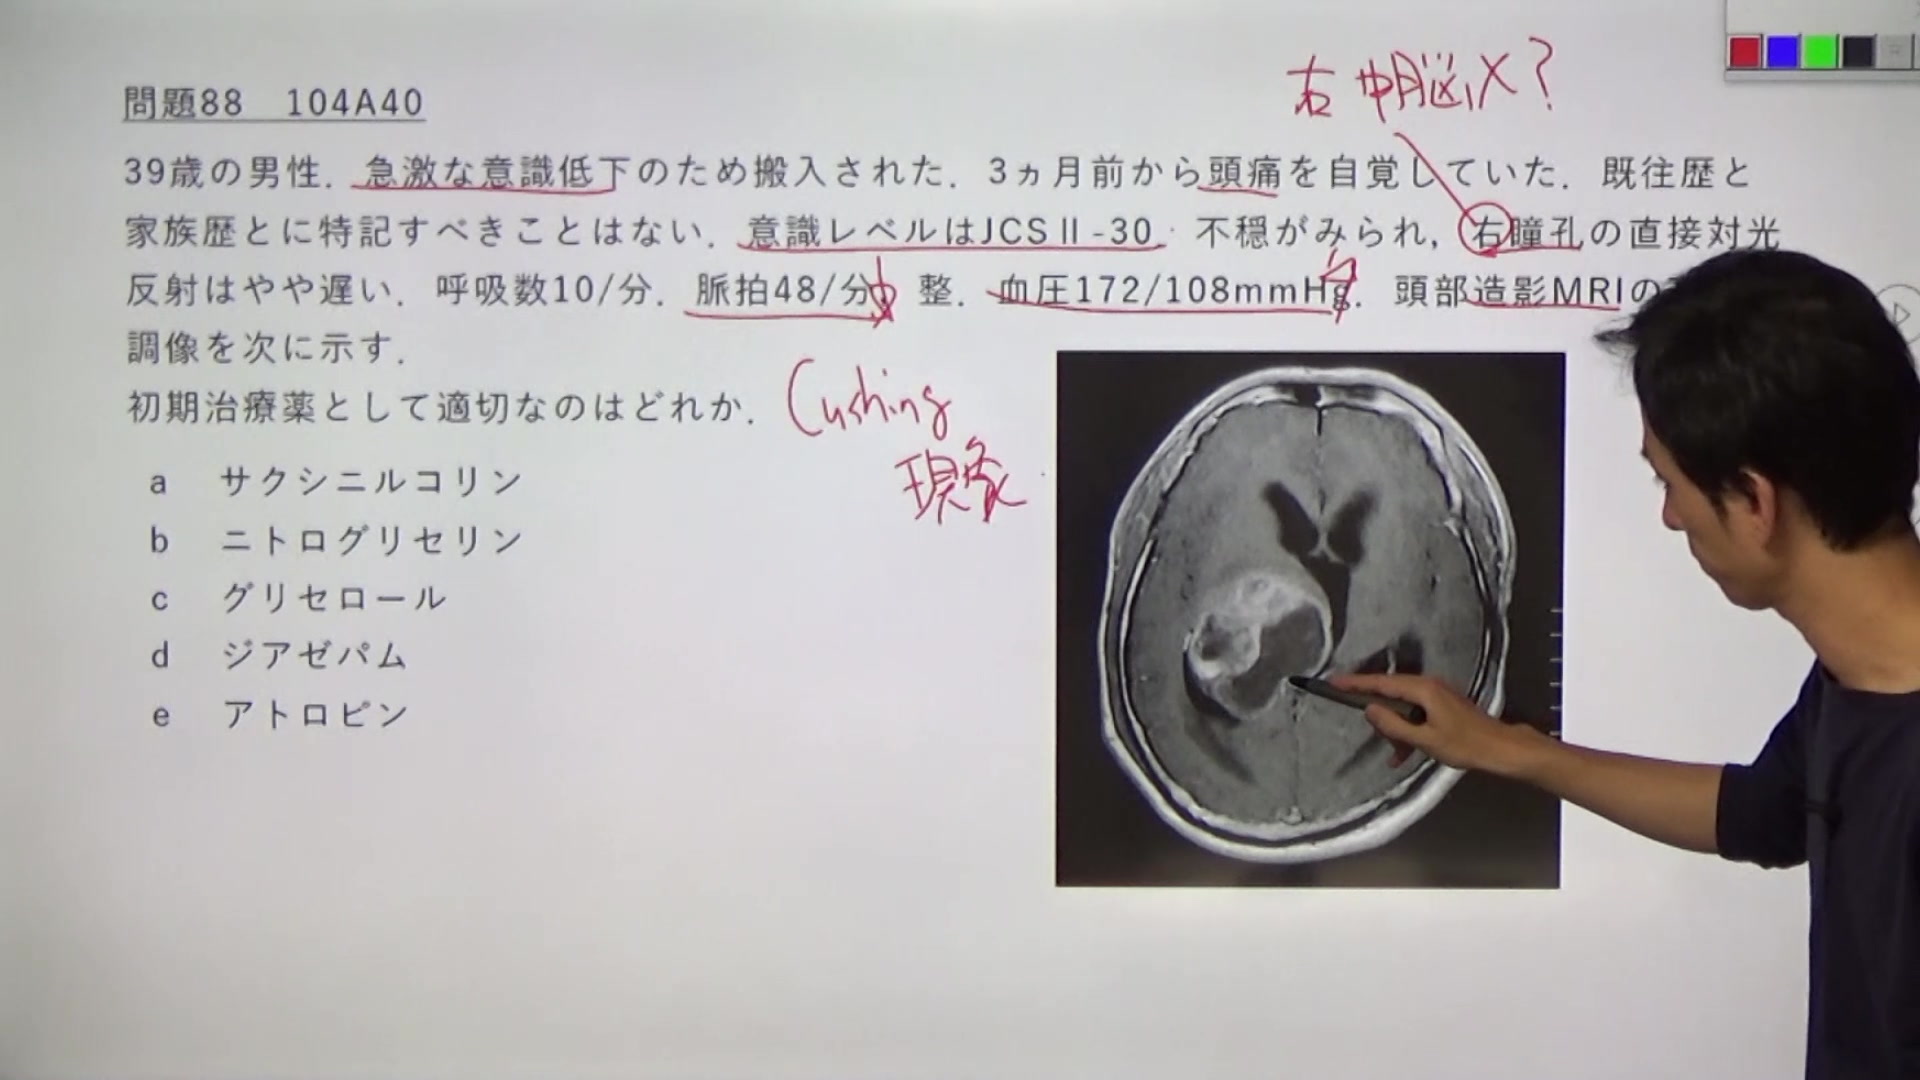 問題88 104A40
右 中脳 X?
39歳の男性．急激な意識低下のため搬入された．3ヵ月前から頭痛を自覚していた．既往歴と
家族歴とに特記すべきことはない．意識レベルはJCSⅡ-30 不穏がみられ，右瞳孔の直接対光
反射はやや遅い．呼吸数10/分．脈拍48/分，整．血圧172/108mmHg．頭部造影MRIの
調像を次に示す．
初期治療薬として適切なのはどれか．
Cushing
現象
a サクシニルコリン
b ニトログリセリン
c グリセロール
d ジアゼパム
e アトロピン